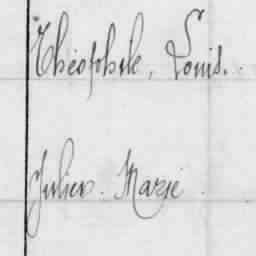 Théophile, Louis.
Julien. Marie.